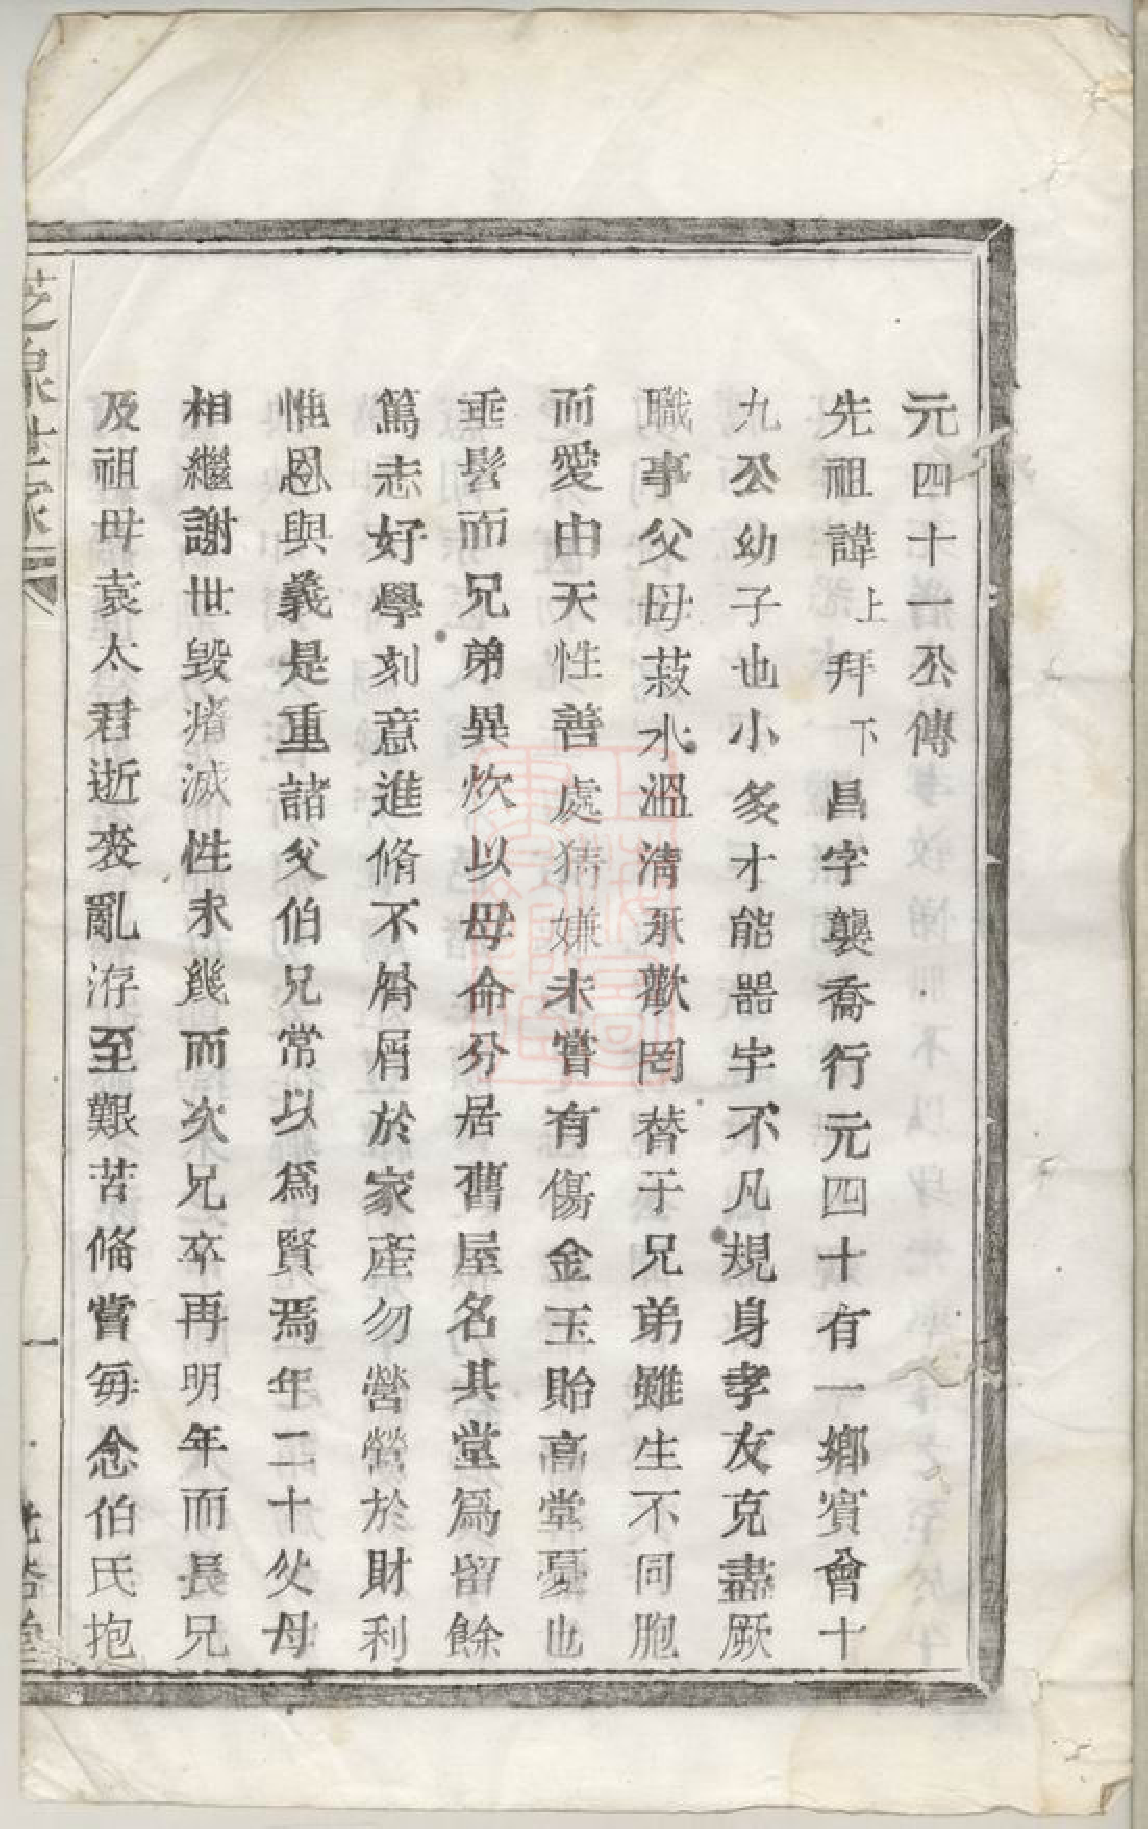 元四十一公傳
先祖諱上拜下昌字襲喬行元四十有一鄉賓會十
九公幼子也小多才能器宇不凡規身孝友克盡厥
職事父母菽水溫清承歡罔替于兄弟雖生不同胞
而愛由天性善處猜嫌未嘗有傷金玉貽高堂憂也
垂髫而兄弟異炊以母命分居舊屋名其堂爲留餘
篤志好學刻意進脩不屑屑於家產勿營營於財利
惟恩與義是重諸父伯兄常以爲賢焉年二十父母
相繼謝世毀瘠滅性未幾而次兄卒再明年而長兄
及祖母袁太君逝喪亂洊至艱苦俻嘗每念伯氏抱
芝泉世家
一